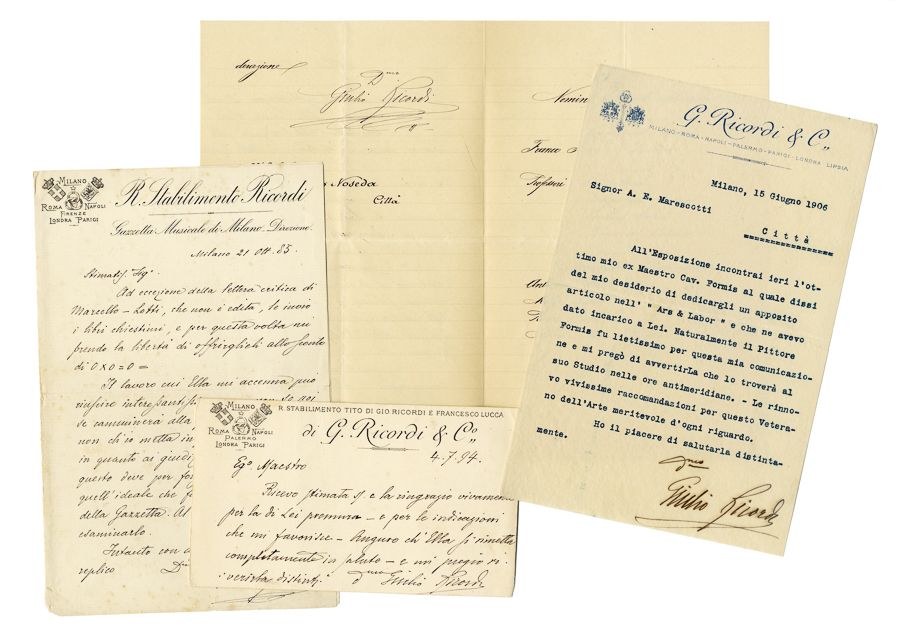 direzione
Dmo
Giulio Ricordi
Nomin
Franco
Professori
Noseda
Città
MILANO
ROMA NAPOLI
FIRENZE
LONDRA PARIGI
R. Stabilimento Ricordi
Gazzetta Musicale di Milano. Direzione.
Milano 21 Ott. 85.
Stimatis. Sigr.
Ad eccezione della lettera critica di
Marcello-Lotti, che non è edita, le invio
i libri chiestimi, e per questa volta mi
prendo la libertà di offrirglieli allo sconto
di 0x0=0=
Il lavoro cui Ella mi accenna può
riuscire interessantis
camminerà alla
non ch'io metta in
in quanto ai giudi
questo deve per for
quell'ideale che
della Gazzetta. Al
esaminarlo.
Intanto con
replico
MILANO
ROMA NAPOLI
PALERMO
LONDRA PARIGI
R. STABILIMENTO TITO DI GIO. RICORDI E FRANCESCO LUCCA
di G. Ricordi & Co.
4.7.94.
Ego. Maestro
Ricevo stimata s/ e la ringrazio vivamente
per la di Lei premura – e per le indicazioni
che mi favorisce – Auguro ch'Ella si rimetta
completamente in salute – e mi pregio ri-
verirla distint.
dmo Giulio Ricordi
G. Ricordi & C.,,
MILANO-ROMA-NAPOLI-PALERMO-PARIGI-LONDRA LIPSIA
Milano, 15 Giugno 1906
Signor A. E. Marescotti
Città
All'Esposizione incontrai ieri l'ot-
timo mio ex Maestro Cav. Formis al quale dissi
del mio desiderio di dedicargli un apposito
articolo nell' " Ars & Labor " e che ne avevo
dato incarico a Lei. Naturalmente il Pittore
Formis fu lietissimo per questa mia comunicazio-
ne e mi pregò di avvertirLa che lo troverà al
suo Studio nelle ore antimeridiane. - Le rinno-
vo vivissime raccomandazioni per questo Vetera-
no dell'Arte meritevole d'ogni riguardo.
Ho il piacere di salutarla distinta-
mente.
Giulio Ricordi